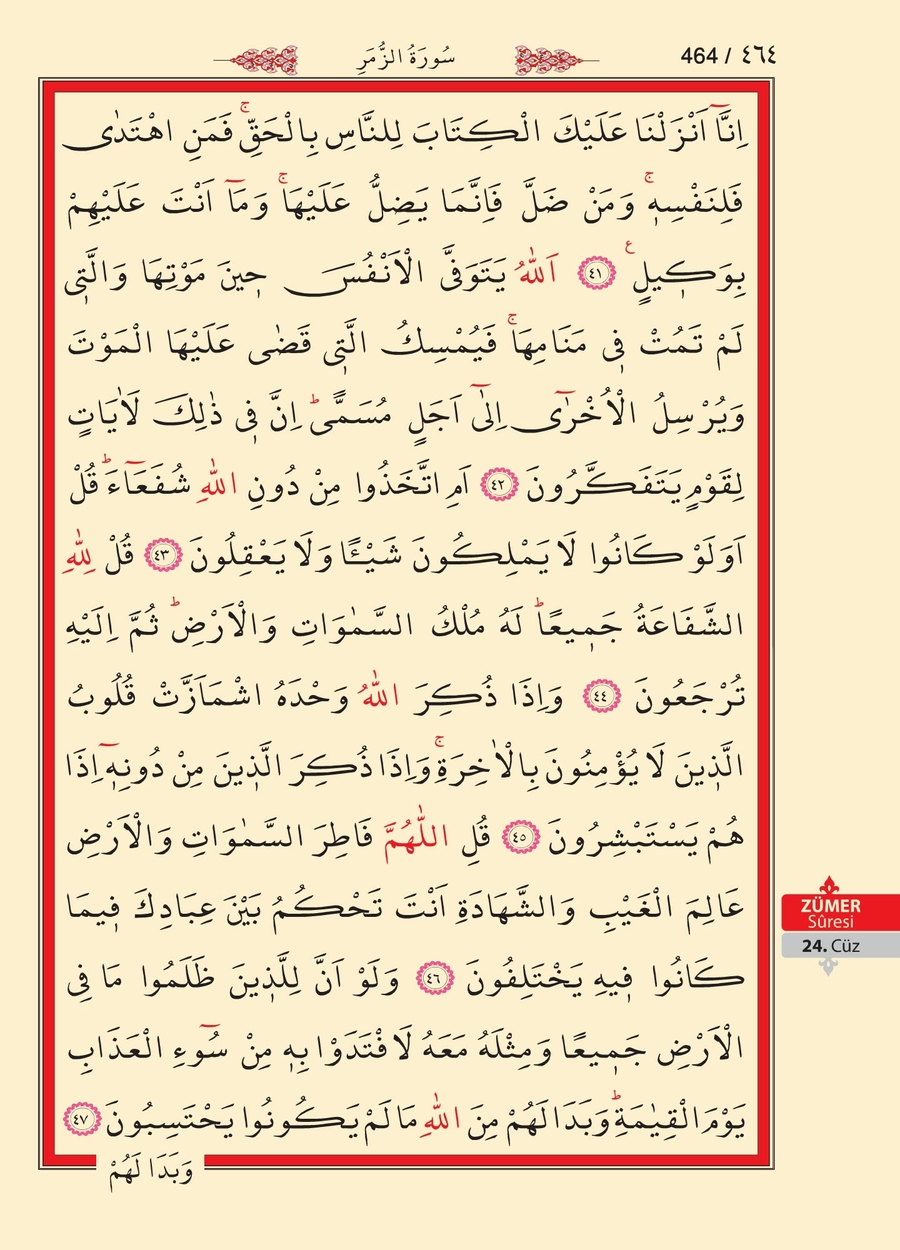 464 / ٤٦٤
سُورَةُ الزُّمَرِ
اِنَّٓا اَنْزَلْنَا عَلَيْكَ الْكِتَابَ لِلنَّاسِ بِالْحَقِّۚ فَمَنِ اهْتَدٰى
فَلِنَفْسِه۪ۚ وَمَنْ ضَلَّ فَاِنَّمَا يَضِلُّ عَلَيْهَاۚ وَمَٓا اَنْتَ عَلَيْهِمْ
بِوَك۪يلٍ۟ ﴿٤١﴾ اَللّٰهُ يَتَوَفَّى الْاَنْفُسَ ح۪ينَ مَوْتِهَا وَالَّت۪ي
لَمْ تَمُتْ ف۪ي مَنَامِهَاۚ فَيُمْسِكُ الَّت۪ي قَضٰى عَلَيْهَا الْمَوْتَ
وَيُرْسِلُ الْاُخْرٰٓى اِلٰٓى اَجَلٍ مُسَمًّىۜ اِنَّ ف۪ي ذٰلِكَ لَاٰيَاتٍ
لِقَوْمٍ يَتَفَكَّرُونَ ﴿٤٢﴾ اَمِ اتَّخَذُوا مِنْ دُونِ اللّٰهِ شُفَعَٓاءَۜ قُلْ
اَوَلَوْ كَانُوا لَا يَمْلِكُونَ شَيْـًٔا وَلَا يَعْقِلُونَ ﴿٤٣﴾ قُلْ لِلّٰهِ
الشَّفَاعَةُ جَم۪يعًاۜ لَهُ مُلْكُ السَّمٰوَاتِ وَالْاَرْضِۜ ثُمَّ اِلَيْهِ
تُرْجَعُونَ ﴿٤٤﴾ وَاِذَا ذُكِرَ اللّٰهُ وَحْدَهُ اشْمَاَزَّتْ قُلُوبُ
الَّذ۪ينَ لَا يُؤْمِنُونَ بِالْاٰخِرَةِۚ وَاِذَا ذُكِرَ الَّذ۪ينَ مِنْ دُونِه۪ٓ اِذَا
هُمْ يَسْتَبْشِرُونَ ﴿٤٥﴾ قُلِ اللّٰهُمَّ فَاطِرَ السَّمٰوَاتِ وَالْاَرْضِ
عَالِمَ الْغَيْبِ وَالشَّهَادَةِ اَنْتَ تَحْكُمُ بَيْنَ عِبَادِكَ ف۪يمَا
كَانُوا ف۪يهِ يَخْتَلِفُونَ ﴿٤٦﴾ وَلَوْ اَنَّ لِلَّذ۪ينَ ظَلَمُوا مَا فِي
الْاَرْضِ جَم۪يعًا وَمِثْلَهُ مَعَهُ لَافْتَدَوْا بِه۪ مِنْ سُٓوءِ الْعَذَابِ
يَوْمَ الْقِيٰمَةِۜ وَبَدَا لَهُمْ مِنَ اللّٰهِ مَا لَمْ يَكُونُوا يَحْتَسِبُونَ ﴿٤٧﴾
وَبَدَا لَهُمْ
ZÜMER
Sûresi
24. Cüz